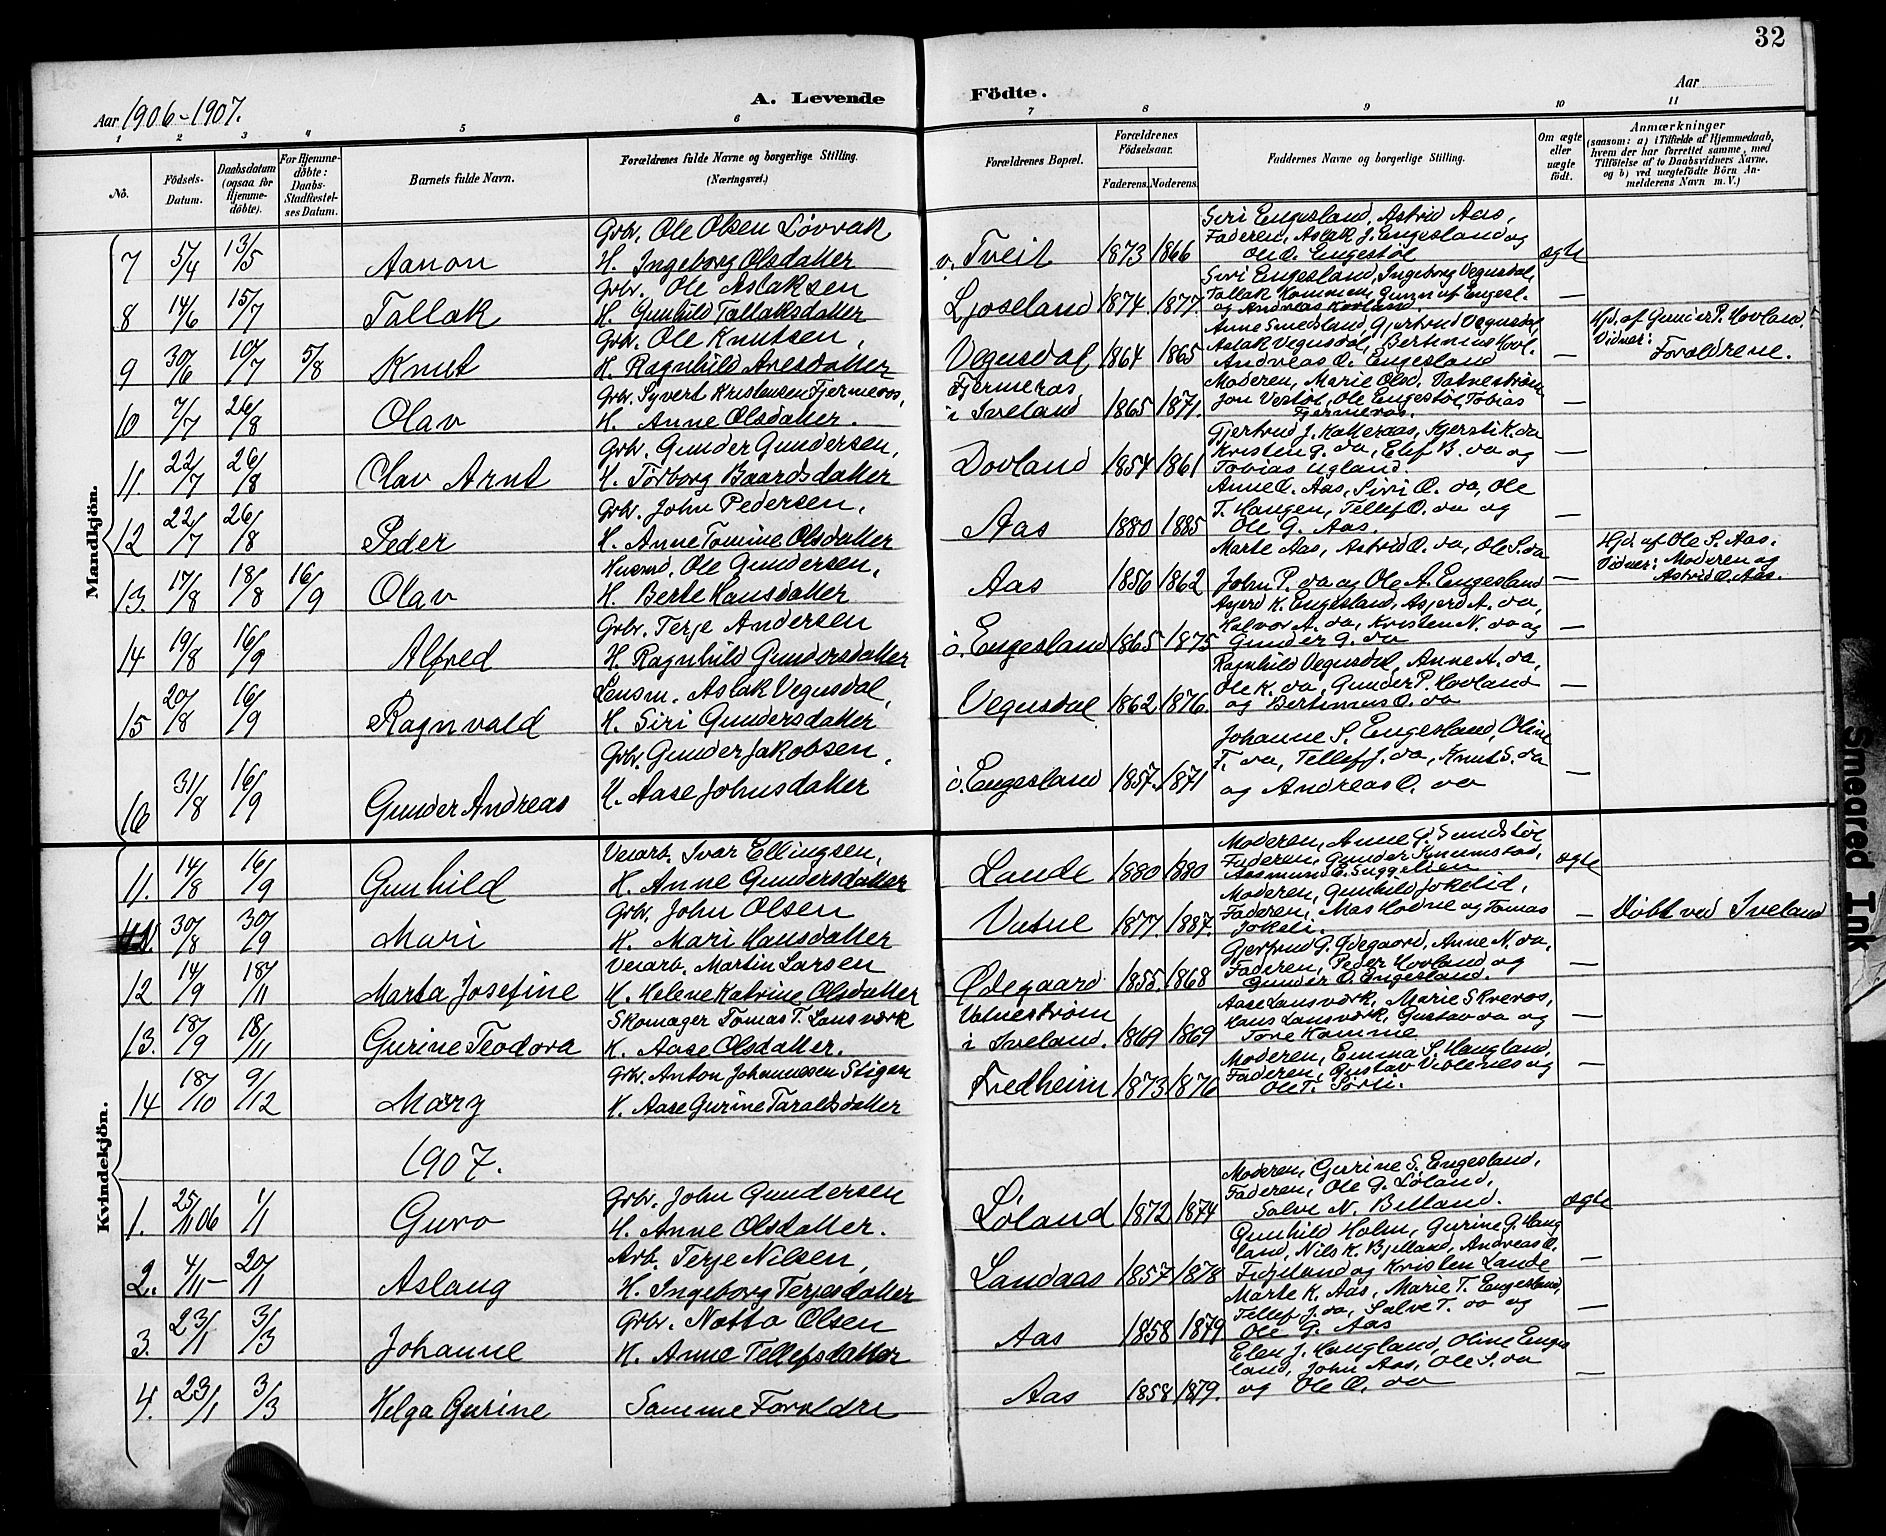 32
Aar 1906-1907.
A. Levende Födte.
Aar
1 2 3 4 5 6 7 8 9 10 11
No.
Födsels-Datum.
Daabsdatum (ogsaa for Hjemme-döbte).
For Hjemme-döbte: Daabs-Stadfæstel-ses Datum.
Barnets fulde Navn.
Forældrenes fulde Navne og borgerlige Stilling. (Næringsvei.)
Forældrenes Bopæl.
Forældrenes Födselsaar.
Faderens. Moderens.
Faddernes Navne og borgerlige Stilling.
Om ægte eller uægte födt.
Anmærkninger
(saasom: a) i Tilfælde af Hjemmedaab, hvem der har forrettet samme, med Tilföielse af to Daabsvidners Navne, og b) ved uægtefödte Börn An-melderens Navn m. V.)
Mandkjön.
7 5/4 13/5 Aanon Grbr. Ole Olsen Løvrak H. Ingeborg Olsdatter ö. Tveit 1873 1866 Siri Engesland, Astrid Aas, Faderen, Aslak J. Engesland og Ole O. Engestøl ægte
8 14/6 15/7 Tallak Grbr. Ole Aslaksen H. Gunhild Tallaksdatter Ljoseland 1874 1877. Siri Engesland, Ingeborg Vegusdal, Tallak Kommen, Gunn af Engesl. og Andreas Hovland —
9 30/6 10/7 5/8 Knut Grbr. Ole Knutsen, H. Ragnhild Aresdatter Vegusdal 1864 1865 Anne Smedsland, Gjertrud Vegusdal, Aslak Vegusdal, Bertinius Hovl. Andreas O. Engesland — Hjd. af Gunder P. Hovland. Vidner: Forældrene.
10 7/7 26/8 Olav Grbr. Syvert Kristensen Fjermeros, H. Anne Olsdatter. Fjermeros i Iveland 1865 1871. Moderen, Marie Olsd. Vatnestrøm Jon Vestøl, Ole Engestøl, Tobias Fjermeros. —
11. 22/7 26/8 Olav Arnt Grbr. Gunder Gundersen, H. Torborg Baardsdatter Dovland 1854 1861 Gjertrud J. Katteraas, Kjersti K. do Kristen G. do, Elef B. do og Tobias Ugland —
12 22/7 26/8 Peder Grbr. John Pedersen, H. Anne Tomine Olsdatter Aas 1880 1885 Anne O. Aas, Siri O. do, Ole T. Haugen, Tellef O. do og Ole G. Aas. —
13. 17/8 18/8 16/9 Olav Husmd. Ole Gundersen, H. Berte Hansdatter Aas 1856 1862 Marte Aas, Astrid O. do, Ole S. do John P. do og Ole A. Engesland — Hjd. af Ole S. Aas. Vidner: Moderen og Astrid O. Aas.
14 19/8 16/9 Alfred Grbr. Terje Andersen H. Ragnhild Gundersdatter ö. Engesland 1865 1875 Asjerd K. Engesland, Asjerd A. do, Halvor A. do, Kristen N. do og Gunder G. do —
15 20/8 16/9 Ragnvald Lensm. Aslak Vegusdal, H. Siri Gundersdatter Vegusdal 1862 1876. Ragnhild Vegusdal, Anne A. do, Ole K. do, Gunder P. Hovland og Bertinius O. do —
16 31/8 16/9 Gunder Andreas Grbr. Gunder Jakobsen, H. Aase Johnsdatter ö. Engesland 1857. 1871 Johanne S. Engesland, Oline T. do, Tellef J. do, Knut S. do og Andreas O. do —
Kvindekjön.
11. 14/8 16/9 Gunhild Veiarb. Ivar Ellingsen, H. Anne Gundersdatter Lande 1880 1880 Moderen, Anne G. Sundstøl Faderen, Gunder Aasmund E. ægte
30/8 30/9 Mari Grbr. John Olsen H. Mari Hansdatter Vatne 1877. 1887. Moderen, Gunhild Jokelid, Faderen, Mas Hodne og Tomas Jokeli. — Døbt ved Iveland
12 14/9 18/11 Marta Josefine Veiarb. Martin Larsen H. Helene Katrine Olsdatter Ødegaard 1855. 1868 Gjertrud G. Ødegaard, Anne N. do, Faderen, Peder Hovland og Gunder O. Engesland. —
13. 18/9 18/11 Gurine Teodora Skomager Tomas T. Lansværk H. Aase Olsdatter. Vatnestrøm i Iveland. 1869 1869 Aase Lansværk, Marie Skreros, Hans Lansværk, Gustav do og Tore Komme —
14 18/10 9/12 Marg Grbr. Anton Johannessen Stigen H. Aase Gurine Taraldsdatter Fredheim 1873 1876 Moderen, Emma S. Haugland, Faderen, Gustav Violenes og Ole T. Sørli. —
1907.
1. 25/11 06 1/1 Guro Grbr. John Gundersen H. Anne Olsdatter. Løland 1872 1874 Moderen, Gurine S. Engesland, Faderen, Ole G. Løland, Salve N. Birkeland. ægte
2. 4/11 — 20/1 Aslaug Arb. Terje Nilsen, H. Ingeborg Terjesdatter Landaas 1857 1878 Gunhild Holm, Gurine G. Haugland, Nils K. Bjelland, Andreas O. Fidjeland og Kristen Lande —
3. 23/1 3/3 Johanne Grbr. Notto Olsen H. Anne Tellefsdatter Aas 1858 1879 Marte K. Aas, Marie T. Engesland, Tellef J. do, Salve T. do og Ole G. Aas —
4. 23/1 3/3 Helga Gurine Samme Forældre Aas 1858 1879. Elen J. Haugland, Oline Engesland, John Aas, Ole S. do og Ole O. do —
Smeared Ink